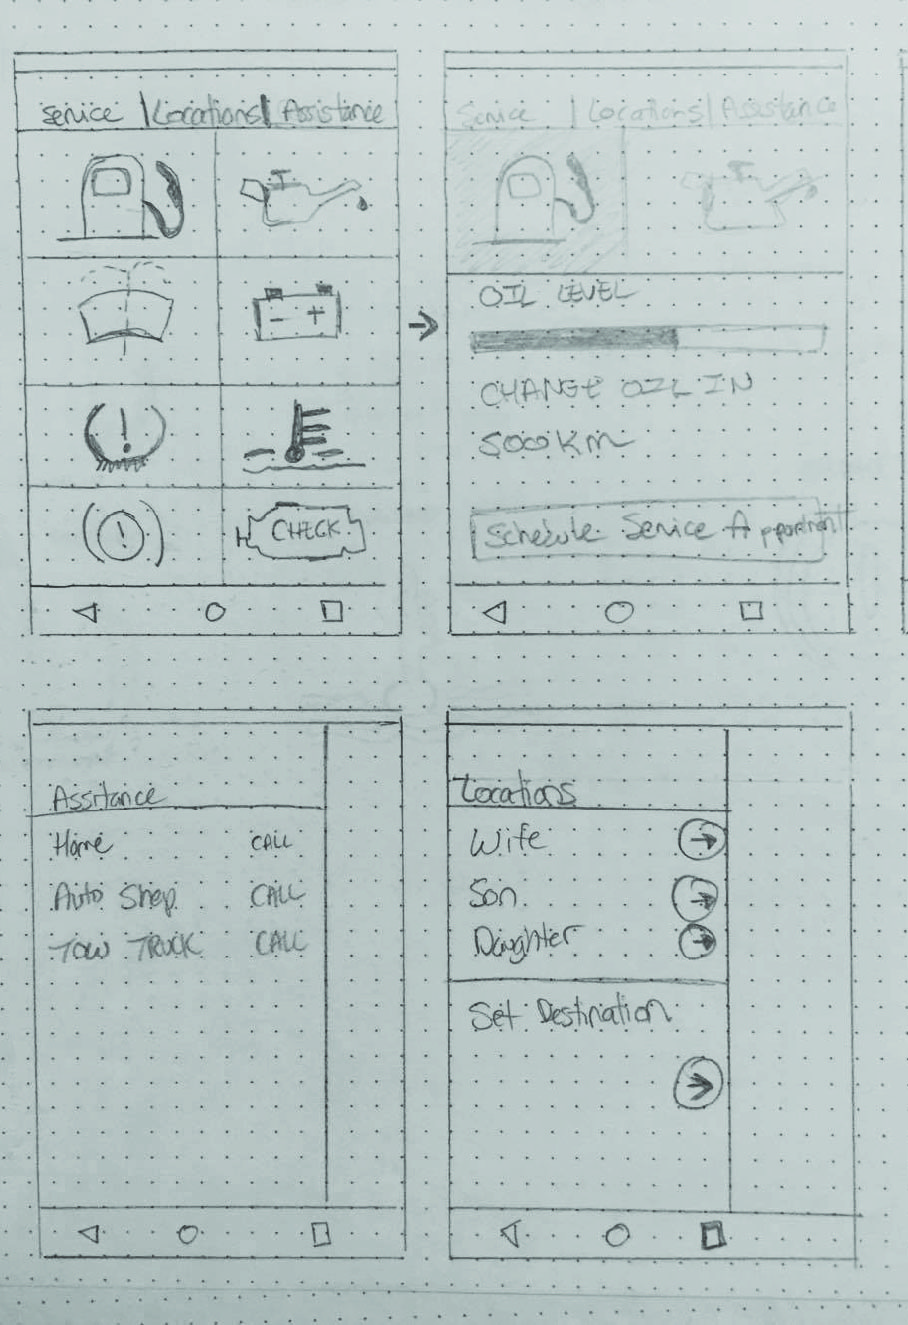 Service | Locations | Assistance
- +
!
! CHECK
Service | Locations | Assistance
OIL LEVEL
CHANGE OIL IN
5000KM
Schedule Service Appointment
Assitance
Home CALL
Auto Shop CALL
TOW TRUCK CALL
Locations
Wife
Son
Daughter
Set Destination